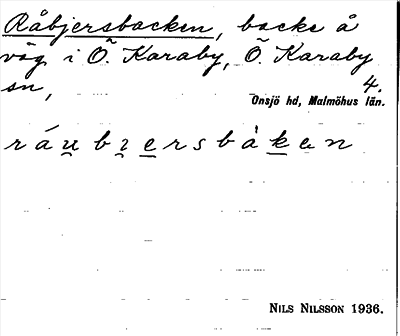 Råbjersbacken, backe å
väg i Ö. Karaby, Ö. Karaby
sn, 4.
Onsjö hd, Malmöhus län.
ráu̯bɿersbàken
NILS NILSSON 1936.